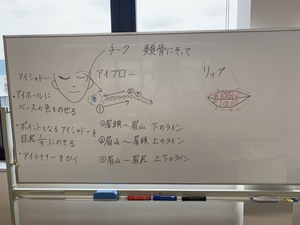 チーク 頬骨にそって
アイシャドー
・アイホールに
ベースの色をのせる
・ポイントとなるアイシャドーを
目尻 にのせる
・アイライナーをひく
アイブロー
①眉頭〜眉山 下のライン
②眉山〜眉頭 上のライン
③眉山〜眉尻 上下のライン
リップ